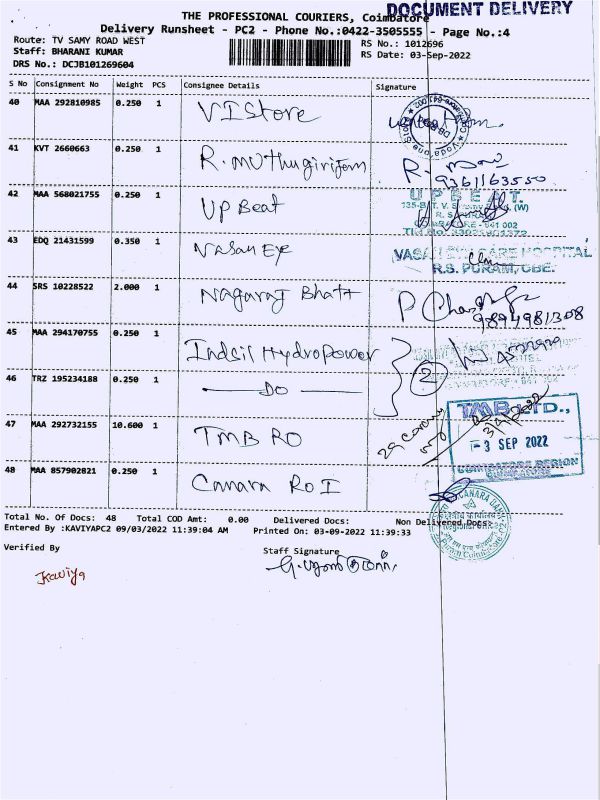 DOCUMENT DELIVERY
THE PROFESSIONAL COURIERS, Coimbatore
Delivery Runsheet - PC2 - Phone No.:0422-3505555 - Page No.:4
Route: TV SAMY ROAD WEST
RS No.: 1012696
Staff: BHARANI KUMAR
RS Date: 03-Sep-2022
DRS No.: DCJB101269604
S No Consignment No Weight PCS Consignee Details Signature
40 MAA 292810985 0.250 1 VI Store
41 KVT 2660663 0.250 1 R. Muthugiriyam
9361163550
42 MAA 568021755 0.250 1 UP Beat
UPBEAT.
43 EDQ 21431599 0.350 1 Vasan Eye
VASAN EYE CARE HOSPITAL
R.S. PURAM, CBE.
44 SRS 10228522 2.000 1 Nagaraj Bhatt
9894981308
45 MAA 294170755 0.250 1 Indsil Hydropower
2
46 TRZ 195234188 0.250 1 — DO —
47 MAA 292732155 10.600 1 TMB RO
TMB LTD.,
- 3 SEP 2022
48 MAA 857902821 0.250 1 Canara RO I
Total No. Of Docs: 48 Total COD Amt: 0.00 Delivered Docs: Non Delivered Docs:
Entered By :KAVIYAPC2 09/03/2022 11:39:04 AM Printed On: 03-09-2022 11:39:33
Verified By
Staff Signature
Kaviya